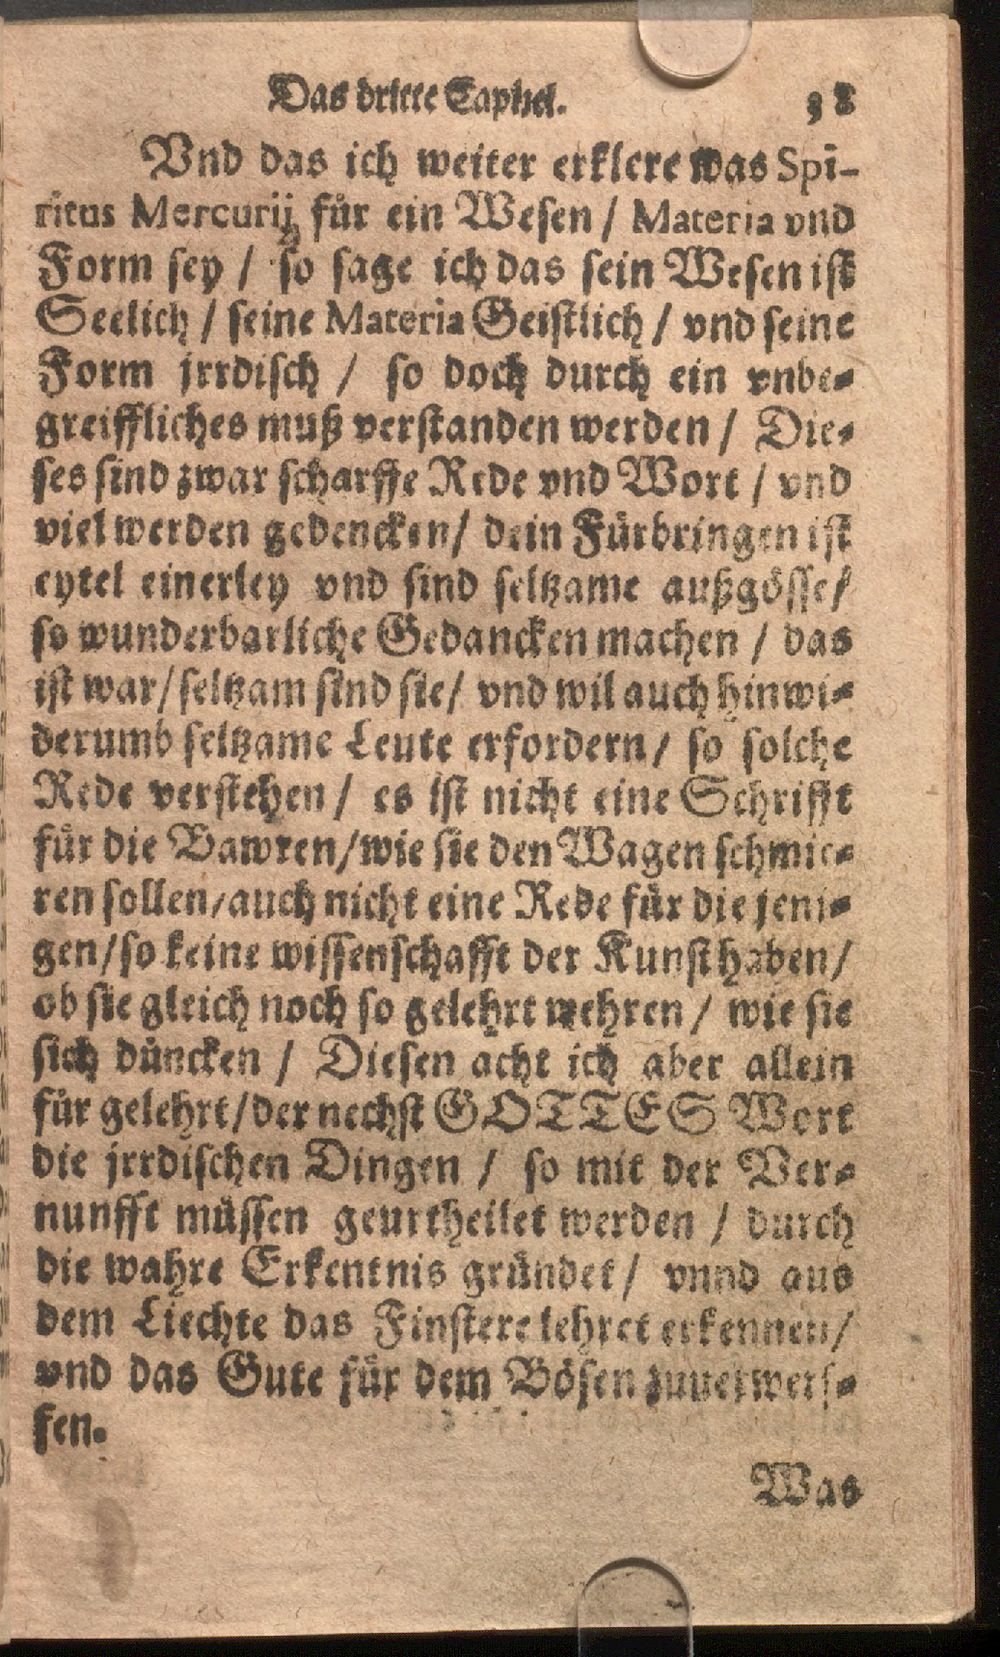 Das dritte Capitel. 38
Vnd das ich weiter erklere was Spi-
ritus Mercurij für ein Wesen / Materia vnd
Form sey / so sage ich das sein Wesen ist
Seelich / seine Materia Geistlich / vnd seine
Form jrrdisch / so doch durch ein vnbe-
greiffliches muß verstanden werden / Die-
ses sind zwar scharffe Rede vnd Wort / vnd
viel werden gedencken / dein Fürbringen ist
eytel einerley vnd sind seltzame außgösse /
so wunderbarliche Gedancken machen / das
ist war / seltzam sind sie / vnd wil auch hinwi-
derumb seltzame Leute erfordern / so solche
Rede verstehen / es ist nicht eine Schrifft
für die Bawren / wie sie den Wagen schmie-
ren sollen / auch nicht eine Rede für die jeni-
gen / so keine wissenschafft der Kunst haben /
ob sie gleich noch so gelehrt wehren / wie sie
sich düncken / Diesen acht ich aber allein
für gelehrt / der nechst GOTTES Wort
die jrrdischen Dingen / so mit der Ver-
nunfft müssen geurtheilet werden / durch
die wahre Erkentnis gründet / vnnd aus
dem Liechte das Finstere lehret erkennen /
vnd das Gute für dem Bösen zuuerwerf-
fen.
Was